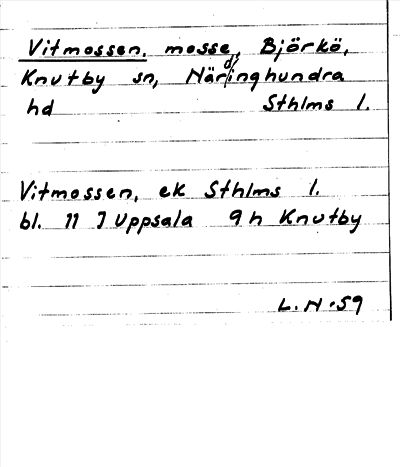 Vitmossen, mosse, Björkö,
Knutby sn, Närdinghundra
hd Sthlms l.
Vitmossen, ek Sthlms l.
bl. 11 J Uppsala 9 h Knutby
L. N. 59